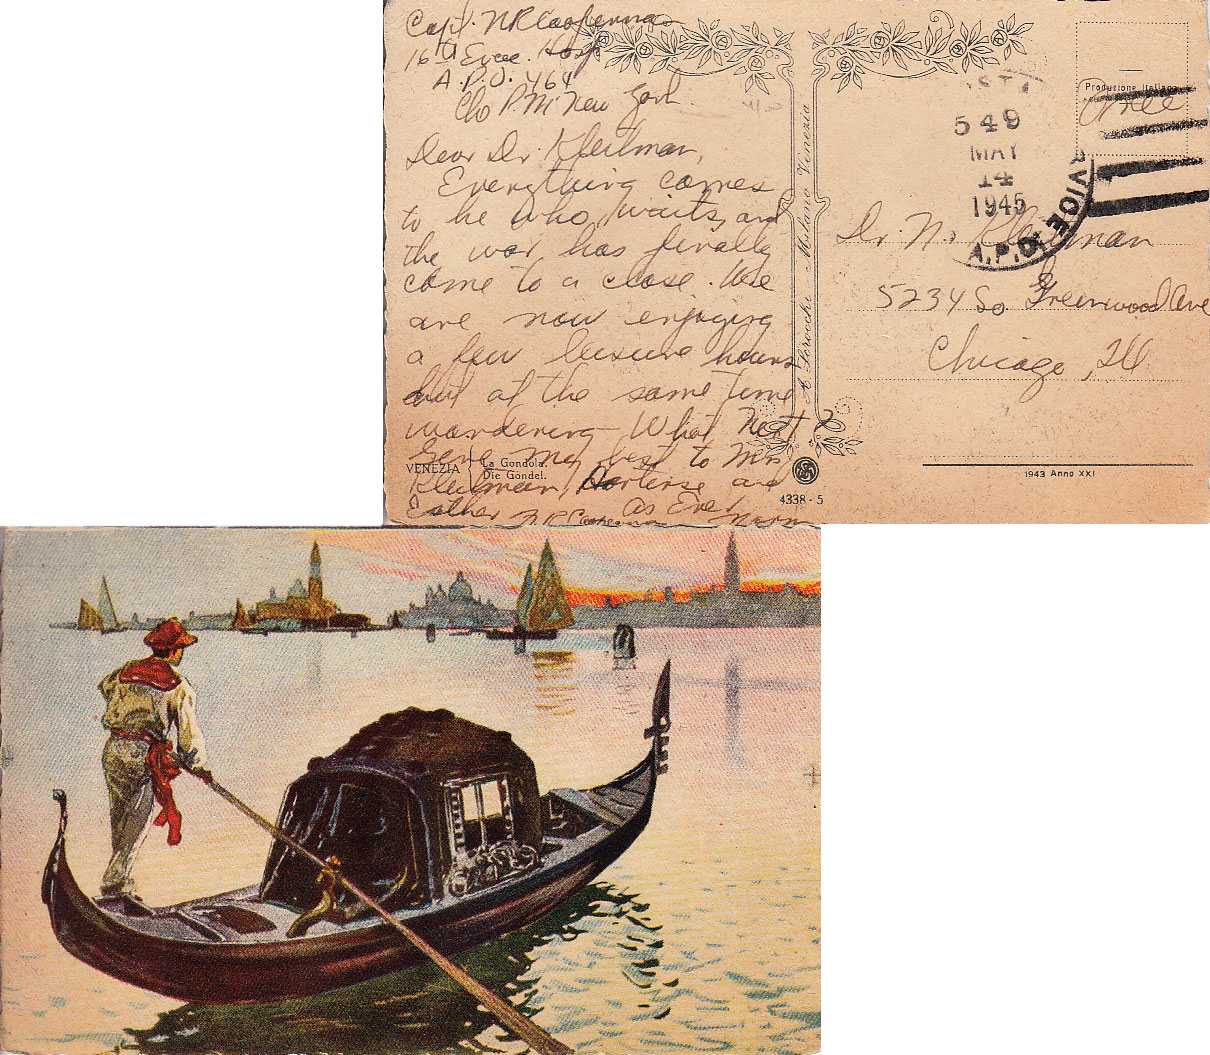 Capt. N R Cooperman
16th Evac. Hosp
A.P.O. 464
C/o P.M. New York
Dear Dr. Kleitman,
Everything comes
to he who waits, and
the war has finally
come to a close. We
are now enjoying
a few leisure hours
but at the same time
wondering What Next?
Give my best to Mrs
Kleitman, Hortense and
Esther As Ever
N R Cooperman Norm
VENEZIA
La Gondola.
Die Gondel.
4338 - 5
Milano Venezia
Produzione Italiana
Free
549
MAY
14
1945
A.P.O.
Dr. N. Kleitman
5234 So. Greenwood Ave
Chicago, Ill
1943 Anno XXI